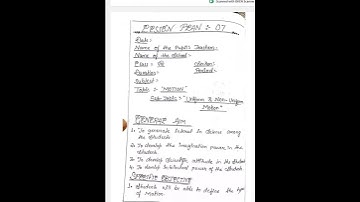 Scanned with OKEN Scanner
LESSON PLAN :- 07
Date:-
Name of the Pupil's Teacher:-
Name of the School:-
Class = 9th Section:-
Duration:- Period:-
Subject:-
Topic :- "MOTION"
Sub-Topic:- "Uniform & Non-Uniform
Motion"
GENERAL AIM
1. To generate interest in Science among
the students
2. To develop the imagination power in the
students
3. To develop scientific attitude in the students
4. To develop intellectual power of the students.
SPECIFIC OBJECTIVE
1. Students will be able to define the type
of Motion.